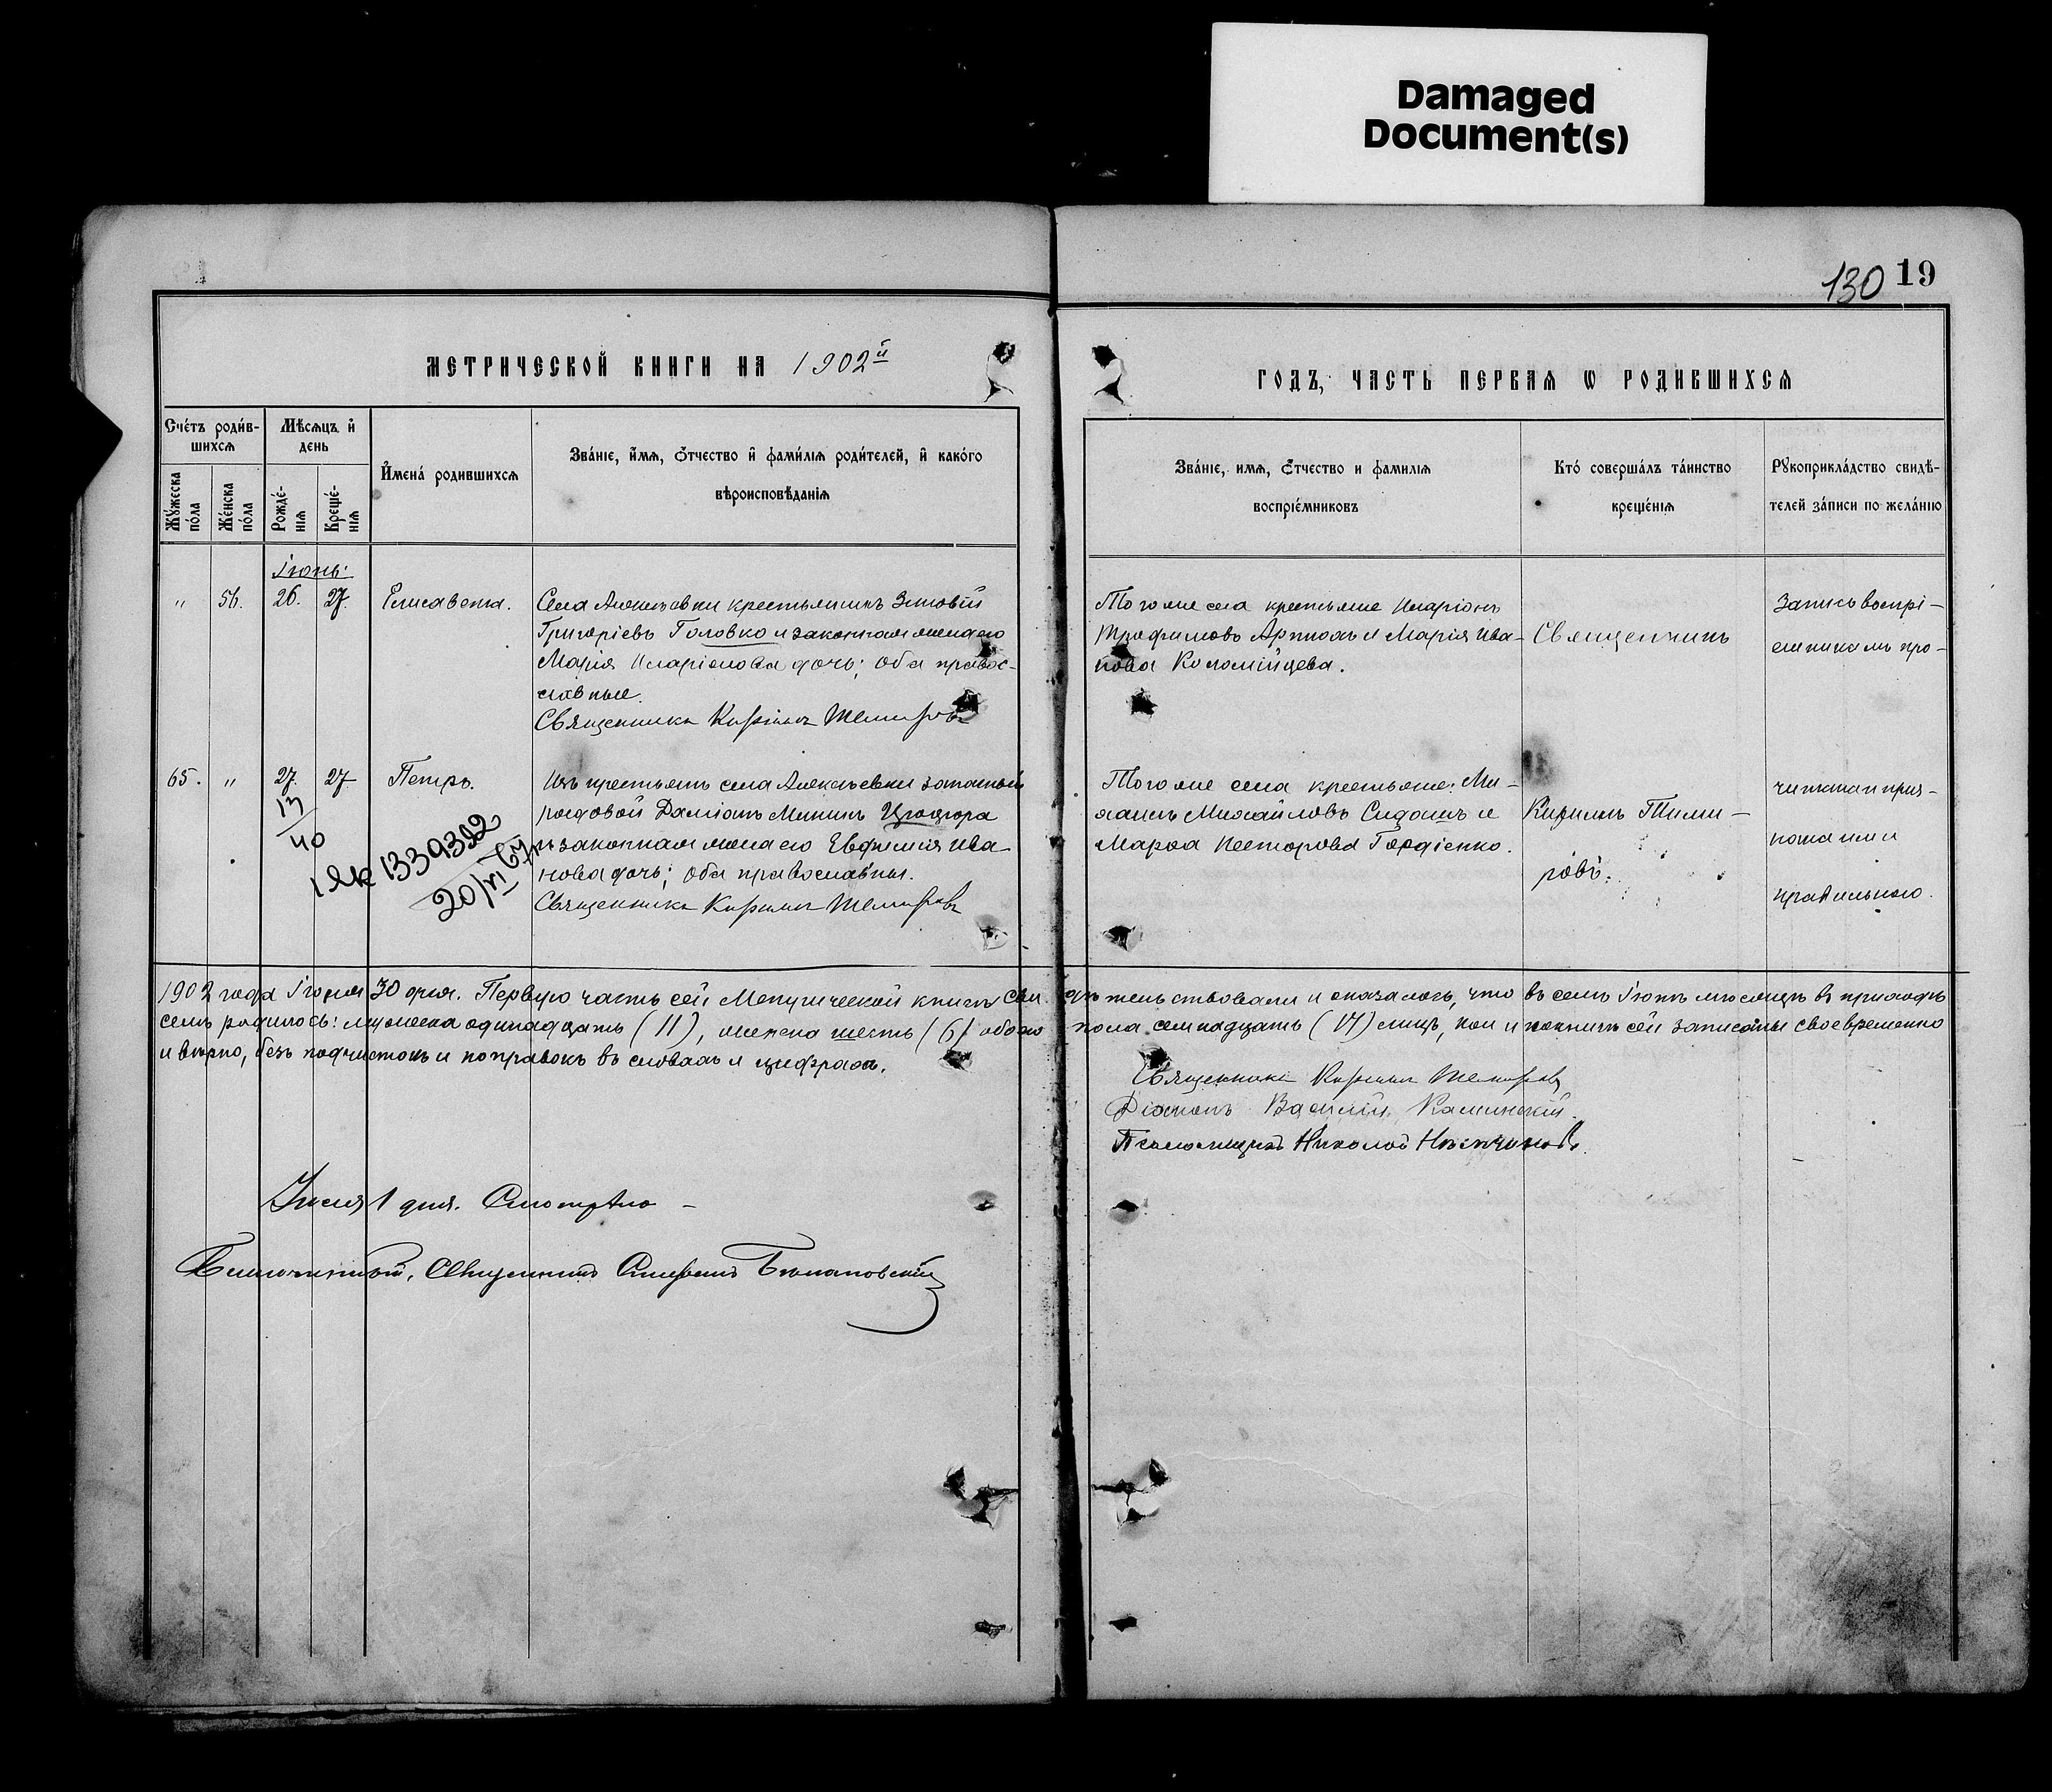 Damaged
Document(s)
130 19
МЕТРИЧЕСКОЙ КНИГИ НА 1902й
ГОДЪ, ЧАСТЬ ПЕРВАЯ Ѡ РОДИВШИХСЯ
Сче́тъ роди́в-
шихся
Мѣ́сяцъ и҆
день
Му́жеска по́ла
Же́нска по́ла
Рожде́-
нія
Креще́-
нія
И҆мена́ родившихся
Зва́ніе, и҆́мя, ѻ҆́тчество и҆ фами́лія роди́телей, и҆ како́го
вѣроисповѣ́данія
Зва́ніе, имя, ѻ҆́тчество и фамилія
воспріе́мниковъ
Кто́ соверша́лъ та́инство
креще́нія
Рꙋкоприкла́дство свидѣ́-
телей за́писи по жела́нію
Іюнь.
" 56. 26. 27. Елисавета.
Села Алексѣевки крестьянинъ Зиновій
Григоріевъ Головко и законная жена его
Марія Иларіонова дочь; оба правос-
лавные.
Священникъ Кириллъ Темировъ
Того же села крестьяне Иларіонъ
Трофимовъ и Марія Ива-
нова Коломійцева.
Священникъ
Запись воспрі-
емникамъ про-
65. " 27. 27 Петръ.
Изъ крестьянъ села Алексѣевки запасный
рядовой Даміанъ Мининъ
и законная жена его Евфимія Ива-
нова дочь; оба православны.
Священникъ Кириллъ Темировъ
13
40
1339392
20/VI 67
Того же села крестьяне: Ми-
хаилъ Михайловъ Сидашъ и
Марѳа Несторова Гордіенко.
Кириллъ Теми-
ровъ.
читана и приз-
нана ими
правильною.
1902 года Іюня 30 дня. Первую часть сей Метрической книги сви-
дѣтельствовали и оказалось, что въ семъ Іюнѣ мѣсяцѣ въ приходѣ
семъ родилось: мужеска одинадцать (11), женска шесть (6) обоего
пола семнадцать (17) лицъ, кои и въ книгѣ сей записаны своевременно
и вѣрно, безъ подчистокъ и поправокъ въ словахъ и цифрахъ.
Священникъ Кириллъ Темировъ
Діаконъ Василій Калинскій.
Псаломщикъ Николай
Іюля 1 дня. Смотрѣлъ
Благочинный, Священникъ